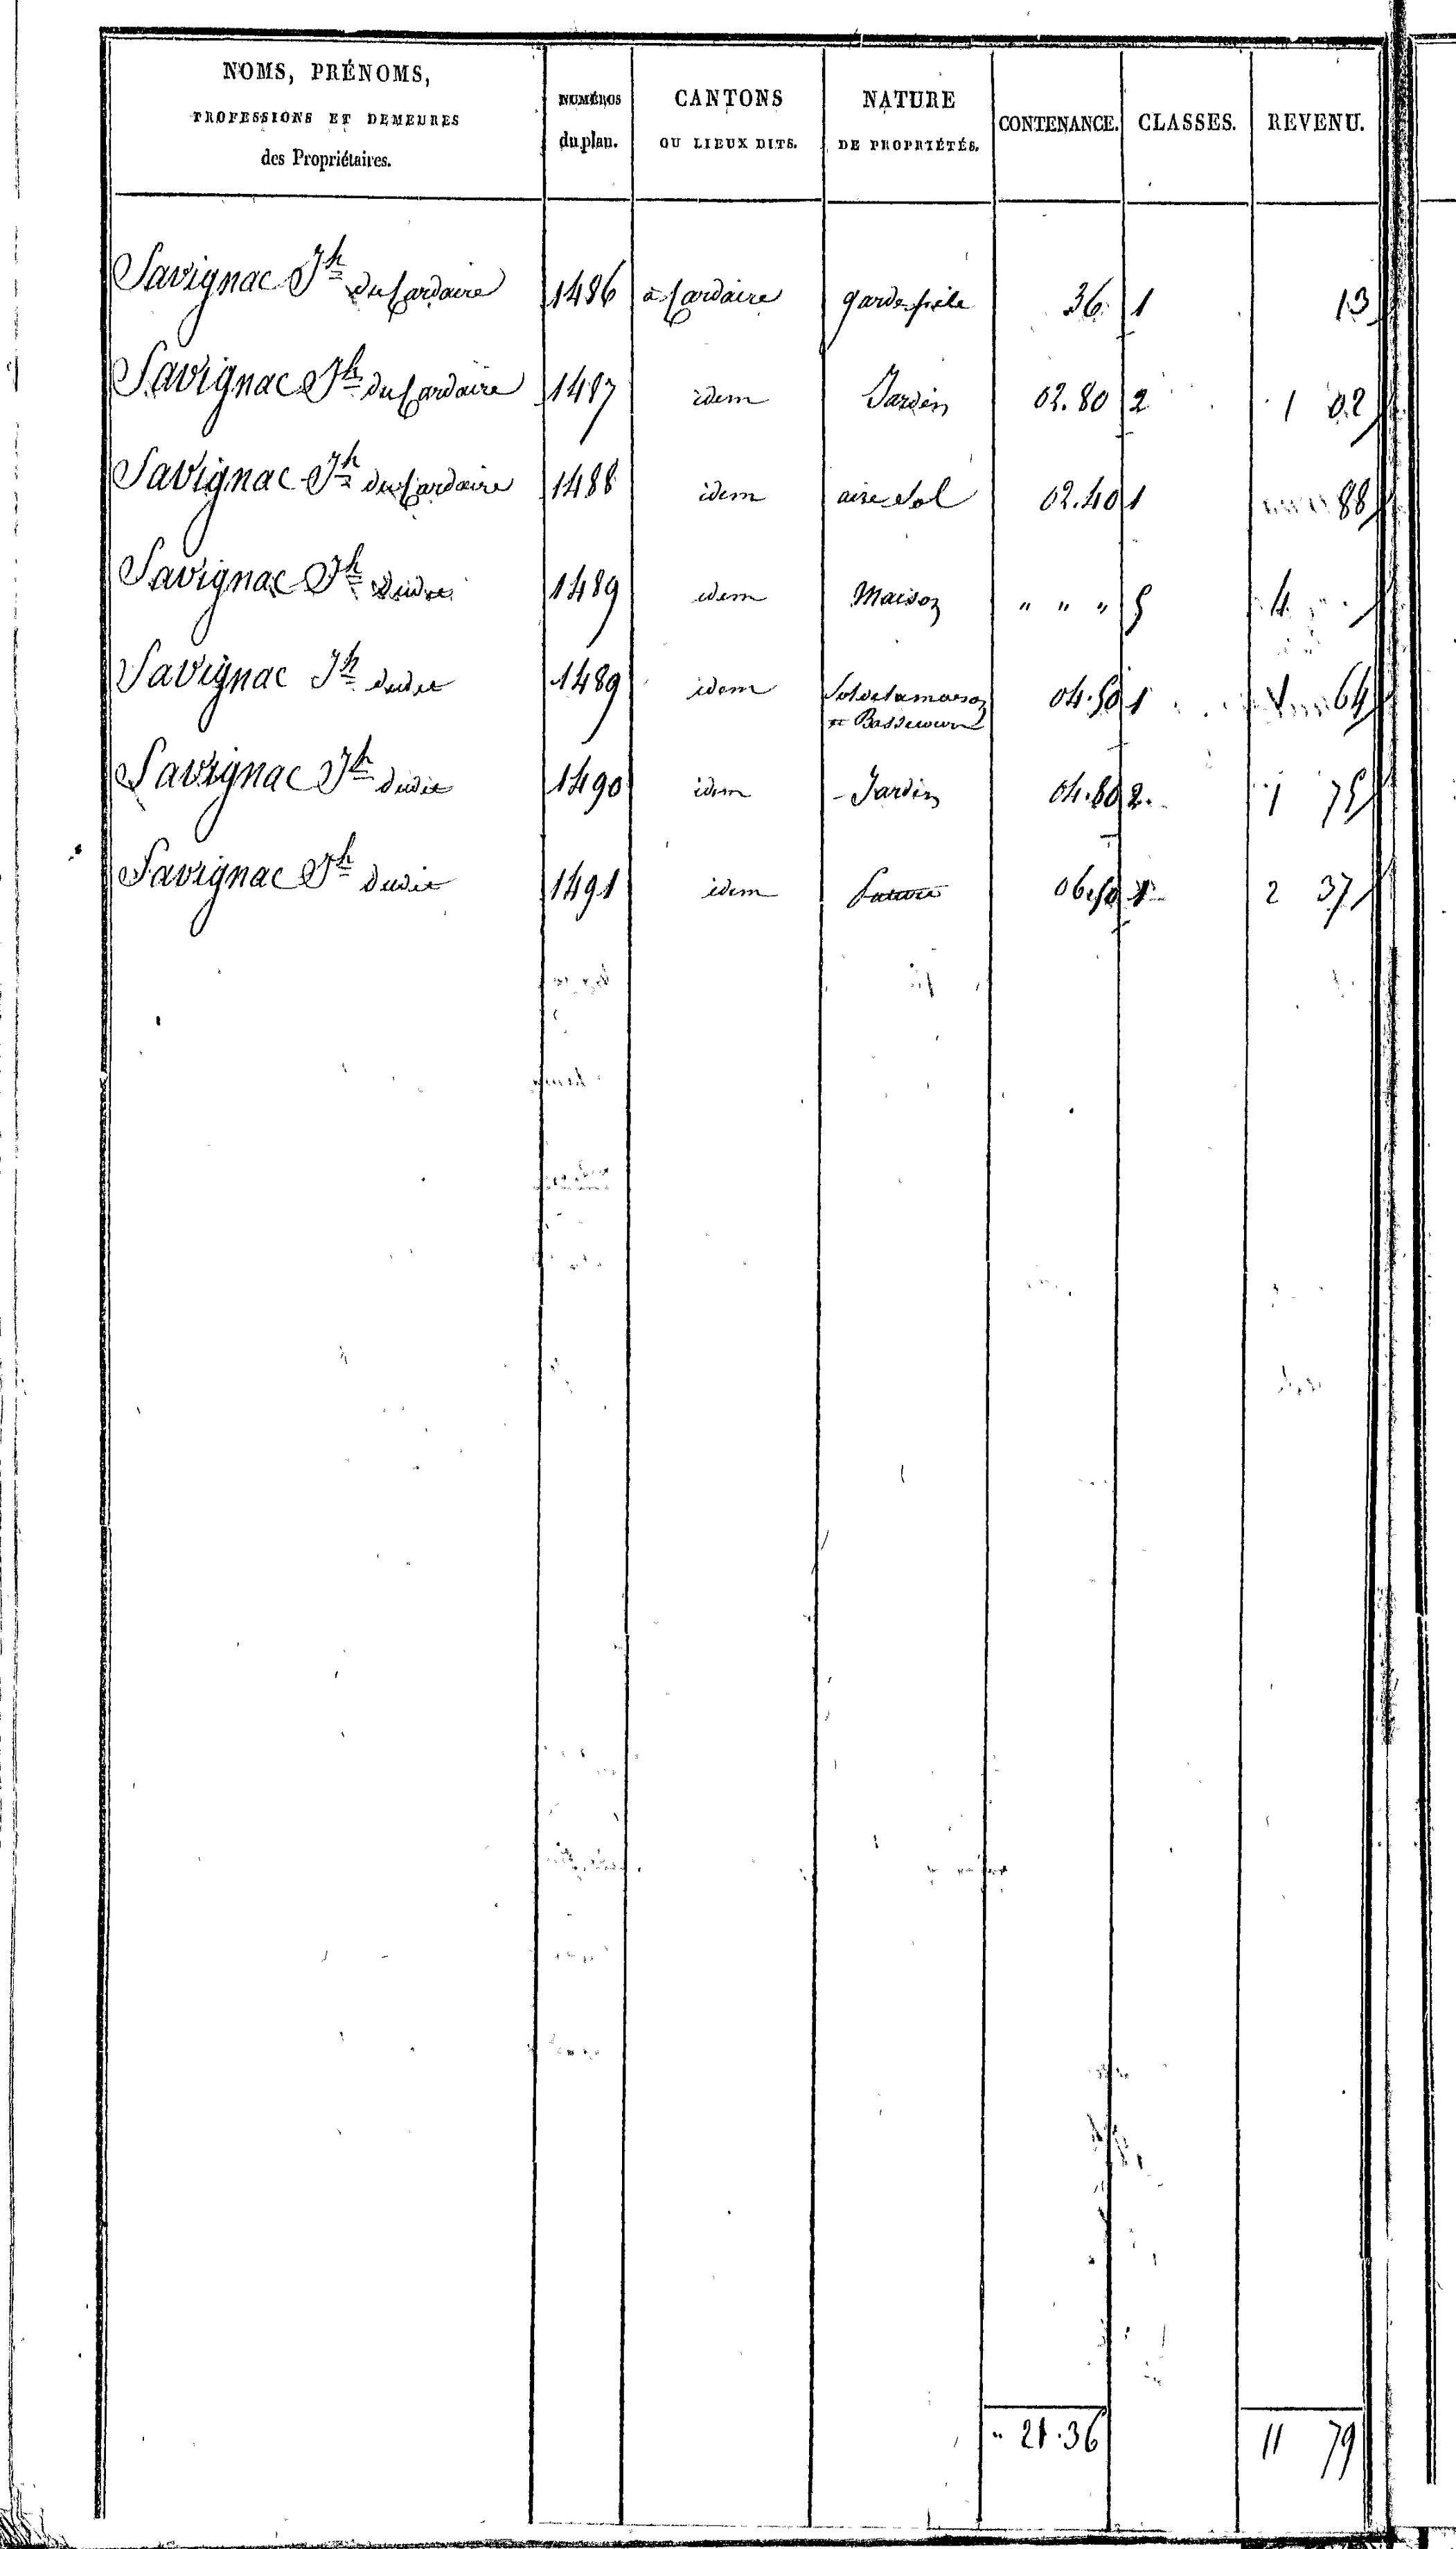 NOMS, PRÉNOMS,
PROFESSIONS ET DEMEURES
des Propriétaires.
NUMÉROS
du plan.
CANTONS
OU LIEUX DITS.
NATURE
DE PROPRIÉTÉS.
CONTENANCE.
CLASSES.
REVENU.
Savignac Jh du Cardaire 1486 à Cardaire garde pile 36 1 13
Savignac Jh du Cardaire 1487 idem Jardin 02.80 2 1 02
Savignac Jh du Cardaire 1488 idem aire sol 02.40 1 88
Savignac Jh dudit 1489 idem Maison " " " 5 4
Savignac Jh dudit 1489 idem Sol de la maison 04.50 1 1 64
et Bassecour
Savignac Jh dudit 1490 idem Jardin 04.80 2 1 75
Savignac Jh dudit 1491 idem 06.50 1 2 37
" 21.36 11 79